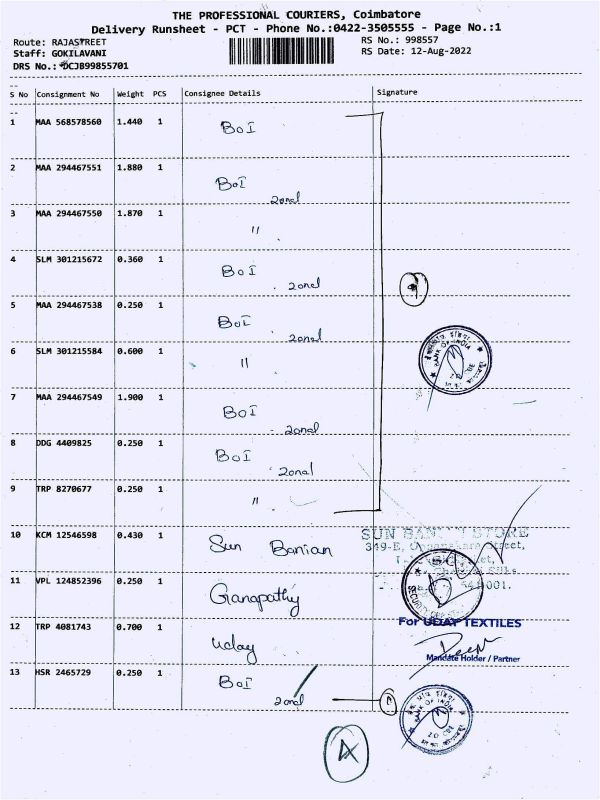 THE PROFESSIONAL COURIERS, Coimbatore
Delivery Runsheet - PCT - Phone No.:0422-3505555 - Page No.:1
Route: RAJASTREET
Staff: GOKILAVANI
DRS No.: DCJB99855701
RS No.: 998557
RS Date: 12-Aug-2022
S No Consignment No Weight PCS Consignee Details Signature
1 MAA 568578560 1.440 1 BoI
2 MAA 294467551 1.880 1 BoI
zonal
3 MAA 294467550 1.870 1 "
4 SLM 301215672 0.360 1 BoI
zonal
5 MAA 294467538 0.250 1 BoI
zonal
6 SLM 301215584 0.600 1 "
7 MAA 294467549 1.900 1 BoI
zonal
8 DDG 4409825 0.250 1 BoI
zonal
9 TRP 8270677 0.250 1 "
10 KCM 12546598 0.430 1 Sun Banian
SUN STORE
349-E, Street,
11 VPL 124852396 0.250 1 Ganapathy
001.
SECURITY
12 TRP 4081743 0.700 1 Uday
For UDAY TEXTILES
Mandate Holder / Partner
13 HSR 2465729 0.250 1 BoI
zonal
BANK OF INDIA
BANK OF INDIA